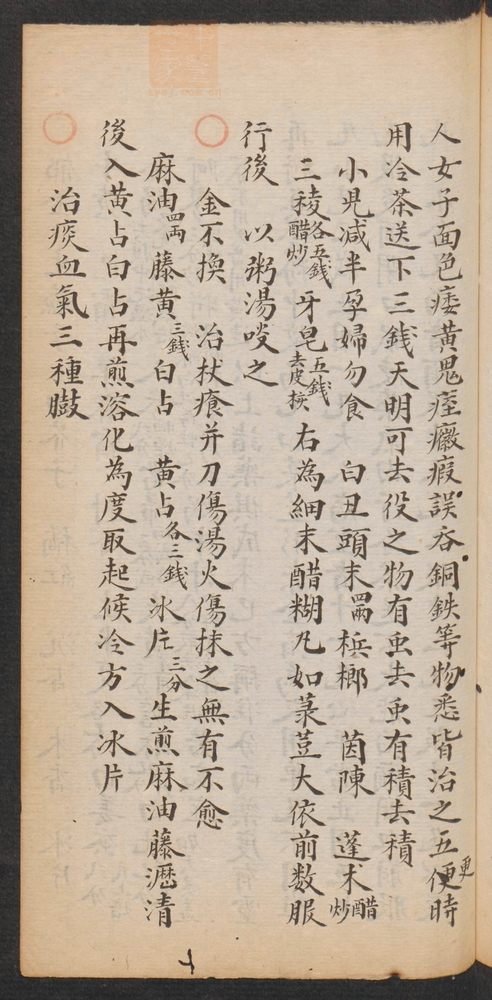 人女子面色痿黃鬼痓癥瘕誤吞銅鉄等物悉皆治之五便時
更
用冷茶送下三錢天明可去役之物有虫去虫有積去積
小児減半孕婦勿食　白丑頭末四兩　梹榔　茵陳　蓬朮醋炒
三稜各五錢醋炒　牙皂五錢去皮核　右為細末醋糊凡如菉荳大依前数服
行後　以粥湯啖之
○　金不換　治杖瘡并刀傷湯火傷抹之無有不愈
麻油四兩　藤黃三錢　白占　黄占各三錢　冰片三分　生煎麻油藤瀝清
後入黄占白占再煎溶化為度取起候冷方入冰片
○　治痰血氣三種臌